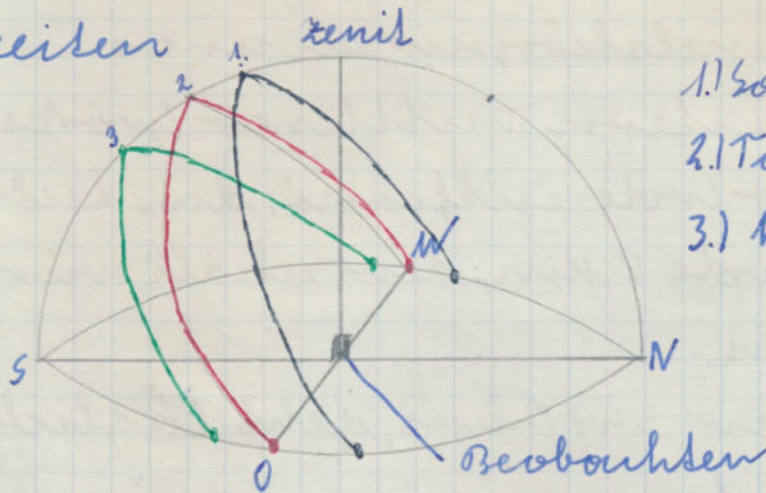 zeiten
zenit
1.
2
3
1.) So
2.) Ti
3.)
W
S
N
O
Beobachter